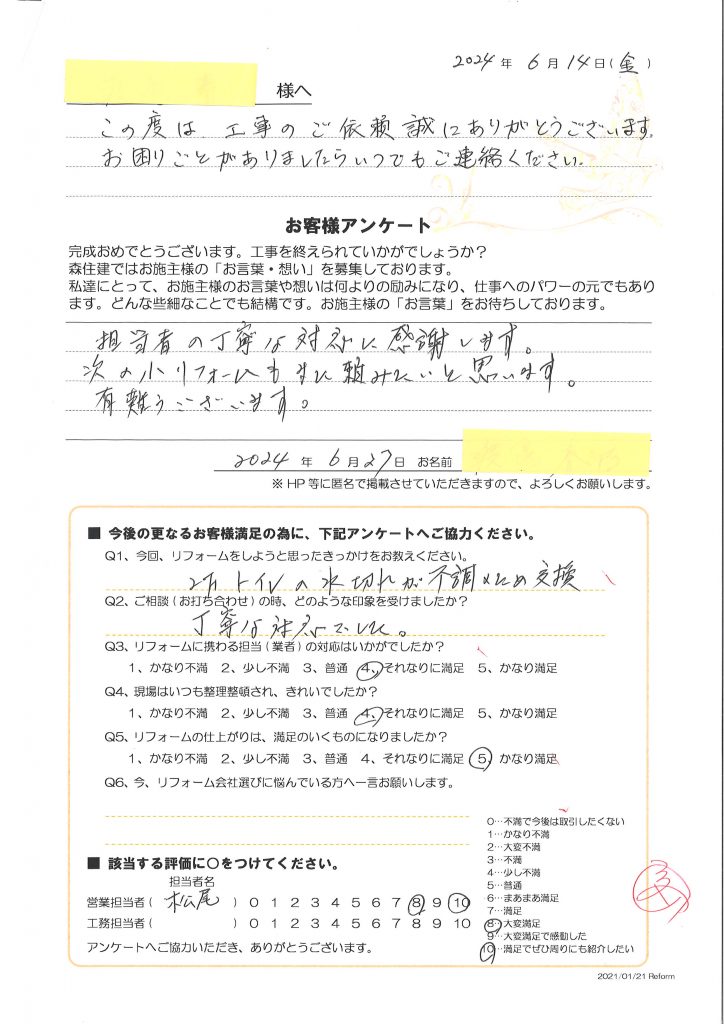 2024 年 6 月 14 日(金)
様へ
この度は、工事のご依頼誠にありがとうございます。
お困りごとがありましたらいつでもご連絡ください。
お客様アンケート
完成おめでとうございます。工事を終えられていかがでしょうか？
森住建ではお施主様の「お言葉・想い」を募集しております。
私達にとって、お施主様のお言葉や想いは何よりの励みになり、仕事へのパワーの元でもあり
ます。どんな些細なことでも結構です。お施主様の「お言葉」をお待ちしております。
担当者の丁寧な対応に感謝します。
次の小リフォームもまた頼みたいと思います。
有難うございます。
2024 年 6 月 27 日 お名前
※HP 等に匿名で掲載させていただきますので、よろしくお願いします。
■ 今後の更なるお客様満足の為に、下記アンケートへご協力ください。
Q1、今回、リフォームをしようと思ったきっかけをお教えください。
2F トイレの水切れが不調のため交換
Q2、ご相談(お打ち合わせ)の時、どのような印象を受けましたか？
丁寧な対応でした。
Q3、リフォームに携わる担当(業者)の対応はいかがでしたか？
1、かなり不満 2、少し不満 3、普通 4、それなりに満足 5、かなり満足
Q4、現場はいつも整理整頓され、きれいでしたか？
1、かなり不満 2、少し不満 3、普通 4、それなりに満足 5、かなり満足
Q5、リフォームの仕上がりは、満足のいくものになりましたか？
1、かなり不満 2、少し不満 3、普通 4、それなりに満足 5、かなり満足
Q6、今、リフォーム会社選びに悩んでいる方へ一言お願いします。
0…不満で今後は取引したくない
1…かなり不満
2…大変不満
3…不満
4…少し不満
5…普通
6…まあまあ満足
7…満足
8…大変満足
9…大変満足で感動した
10…満足でぜひ周りにも紹介したい
■ 該当する評価に○をつけてください。
担当者名
営業担当者( 松尾 ) 0 1 2 3 4 5 6 7 8 9 10
工務担当者( ) 0 1 2 3 4 5 6 7 8 9 10
アンケートへご協力いただき、ありがとうございます。
2021/01/21 Reform